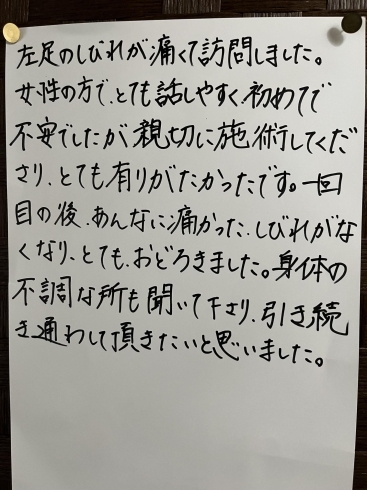 左足のしびれが痛くて訪問しました。
女性の方で、とても話しやすく、初めてで
不安でしたが親切に施術してくだ
さり、とても有りがたかったです。一回
目の後、あんなに痛かった、しびれがな
くなり、とても、おどろきました。身体の
不調な所も聞いて下さり、引き続
き通わして頂きたいと思いました。